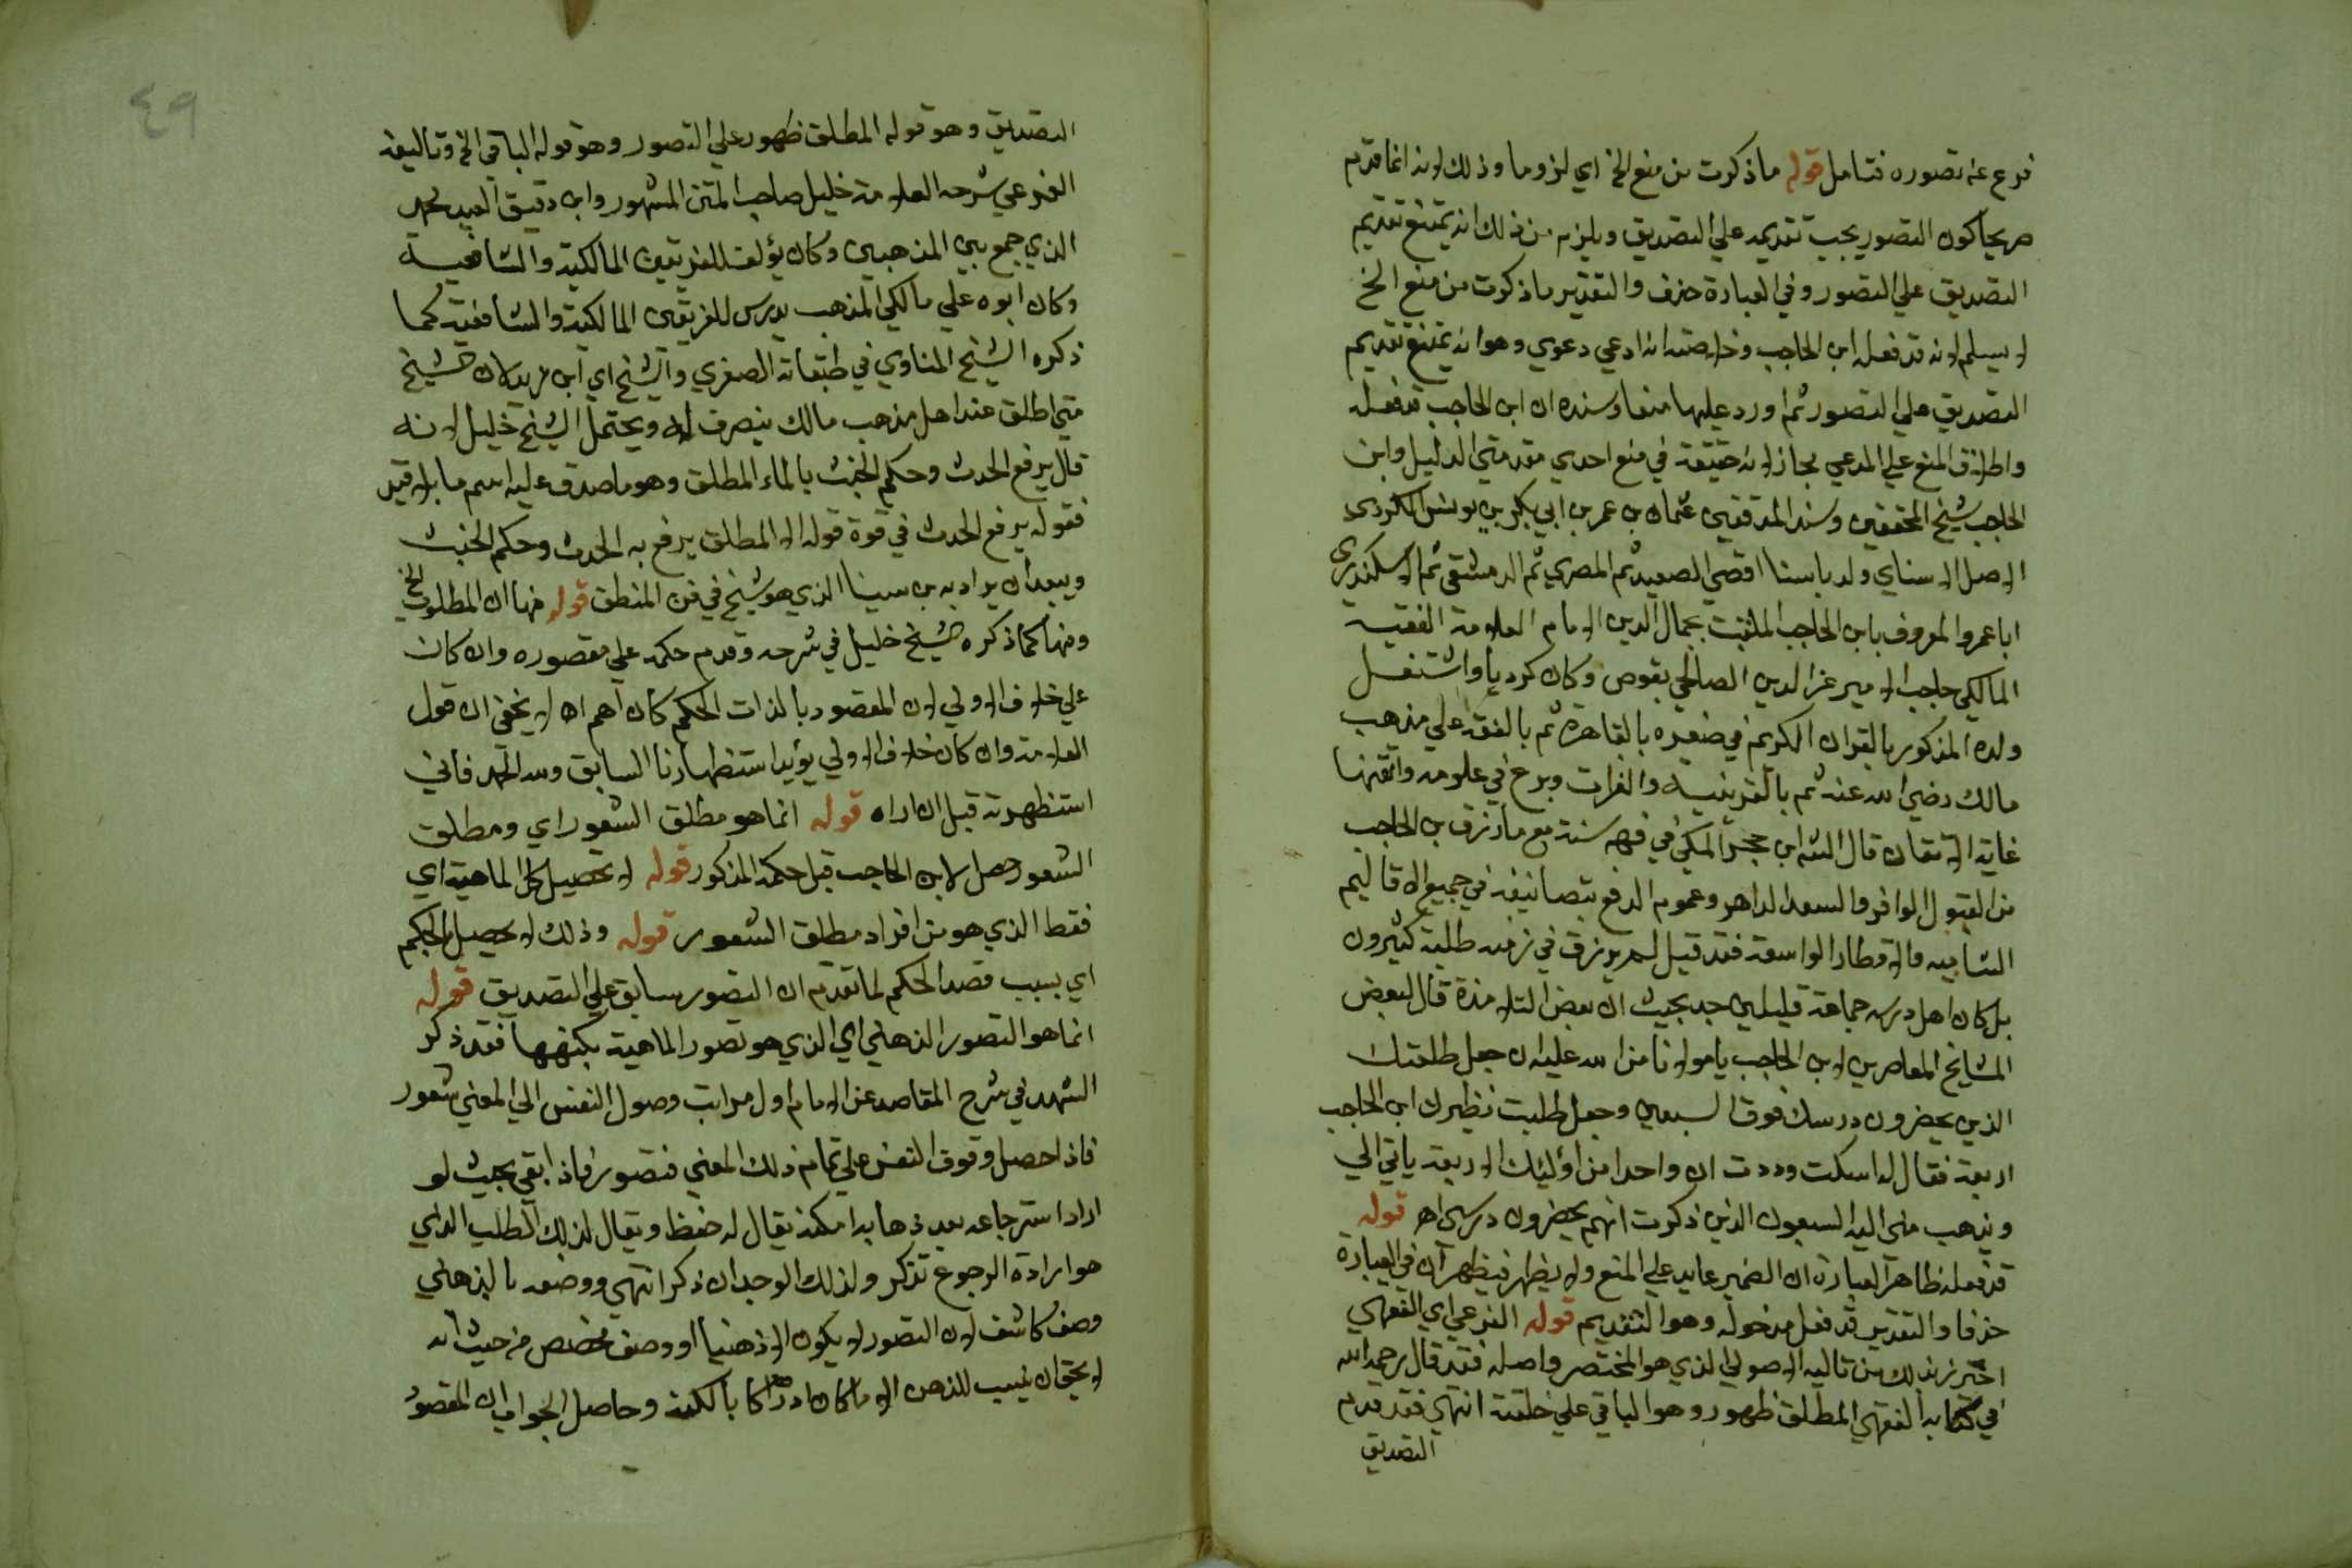 فرع عن تصوره فتامل قوله ما ذكرت من منع الخ اي لزوما وذلك لانه انما قدم
صريحا كون التصور يجب تقديمه علي التصديق ويلزم من ذلك انه يمتنع تقديم
التصديق علي التصور وفي العبارة حذف والتقدير ما ذكرت من منع الخ
لا يسلم لانه قد فعله ابن الحاجب وخلاصته انه ادعي دعوي وهو انه يمتنع تقديم
التصديق علي التصور ثم اورد عليها منعا وسنده ان ابن الحاجب قد فعله
واطلاق المنع علي المدعي مجاز لانه حقيقة في منع احدي مقدمتي الدليل وابن
الحاجب شيخ المحققين وسند المدققين عثمان بن عمر بن ابي بكر بن يونس الكردي
الاصل الاسناي ولد باسنا اقصي الصعيد ثم المصري ثم الدمشقي ثم الاسكندري
ابا عمرو المعروف بابن الحاجب الملقب بجمال الدين الامام العلامة الفقيه
المالكي حاجب الامير عز الدين الصالحي بقوص وكان كرديا واشتغل
ولده المذكور بالقران الكريم في صغره بالقاهرة ثم بالفقه علي مذهب
مالك رضي الله عنه ثم بالعربية والقرات وبرع في علومه واتقنها
غاية الاتقان قال الشه ابن حجر المكي في فهرسته مع ما رزق بن الحاجب
من القبول الوافر والسعد الداهر وعموم الدفع بتصانيفه في جميع الاقاليم
الشايعه والاقطار الواسعة فقد قيل لم يرزق في زمنه طلبة كثيرون
بل كان اهل درسه جماعة قليلين جد بحيث ان بعض التلامذة قال لبعض
المشايخ المعاصرين لابن الحاجب يا مولانا من الله عليك ان جعل طلعتك
الذين يحضرون درسك فوق السبعين وجعل طلبت نظيرك ابن الحاجب
اربعة فقال له اسكت وددت ان واحدا من اوليك الاربعة ياتي الي
ويذهب مني اليه السبعون الذين ذكرت انهم يحضرون درسي اهـ قوله
قد فعله ظاهر العبارة ان الضمير عايد علي المنع ولا يظهر فيظهر ان في العبارة
حذفا والتقدير قد فعل مدخوله وهو التقديم قوله الفرعي اي الفقهي
احترز بذلك من تاليه الاصولي الذي هو المختصر واصله فقد قال رحمه الله
في كتابه الفقهي المطلق طهور وهو الباقي علي خلقته انتهي فقد قدم
التصديق
٤٩
التصديق وهو قوله المطلق طهور علي التصور وهو قوله الباقي الخ وتاليفه
الفرعي شرحه العلامة خليل صاحب المتن المشهور وابن دقيق العيد محمد
الذي جمع بين المذهبين وكان يؤلف للفريقين المالكية والشافعية
وكان ابوه علي مالكي المذهب يدرس للفريقين المالكية والشافعية كما
ذكره الشيخ المناوي في طبقاته الصغري والشيخ اي ابي زيد لان الشيخ
متي اطلق عند اهل مذهب مالك ينصرف له ويحتمل الشيخ خليل لانه
قال يرفع الحدث وحكم الخبث بالماء المطلق وهو ما صدق عليه اسم ما بلا قيد
فقوله يرفع الحدث في قوة قوله الا المطلق يرفع به الحدث وحكم الخبث
ويبعد ان يراد به بن سينا الذي هو شيخ في فن المنطق قوله منها ان المطلوب الخ
ومنها كما ذكره الشيخ خليل في شرحه وقدم حكمه علي مقصوره وان كان
علي خلاف الاولي لان المقصود بالذات الحكم كان اهم اهـ لا يخفي ان قول
العلامة وان كان خلاف الاولي يؤيد استظهارنا السابق ولله الحمد فاني
استظهرته قبل ان اراه قوله انما هو مطلق الشعور اي ومطلق
الشعور حصل لابن الحاجب قبل حكمه المذكور قوله لا تحصيل كل الماهية اي
فقط الذي هو من افراد مطلق الشعور قوله وذلك لا يحصل بالحكم
اي بسبب قصد الحكم لما تقدم ان التصور سابق علي التصديق قوله
انما هو التصور الذهني اي الذي هو تصور الماهية بكنهها فقد ذكر
السعد في شرح المقاصد عن الامام اول مراتب وصول النفس الي المعني شعور
فاذا حصل وقوف النفس علي تمام ذلك المعني فتصور فاذا بقي بحيث لو
اراد استرجاعه بعد ذهابه امكنه يقال له حفظ ويقال لذلك الطلب الذي
هو ارادة الرجوع تذكر ولذلك الوجدان ذكر انتهي ووصفه بالذهني
وصف كاشف لان التصور لا يكون الا ذهنيا او وصف مخصص من حيث انه
لا يحق ان ينسب للذهن الا ما كان ادراكا بالكنه وحاصل الجواب ان المقصود